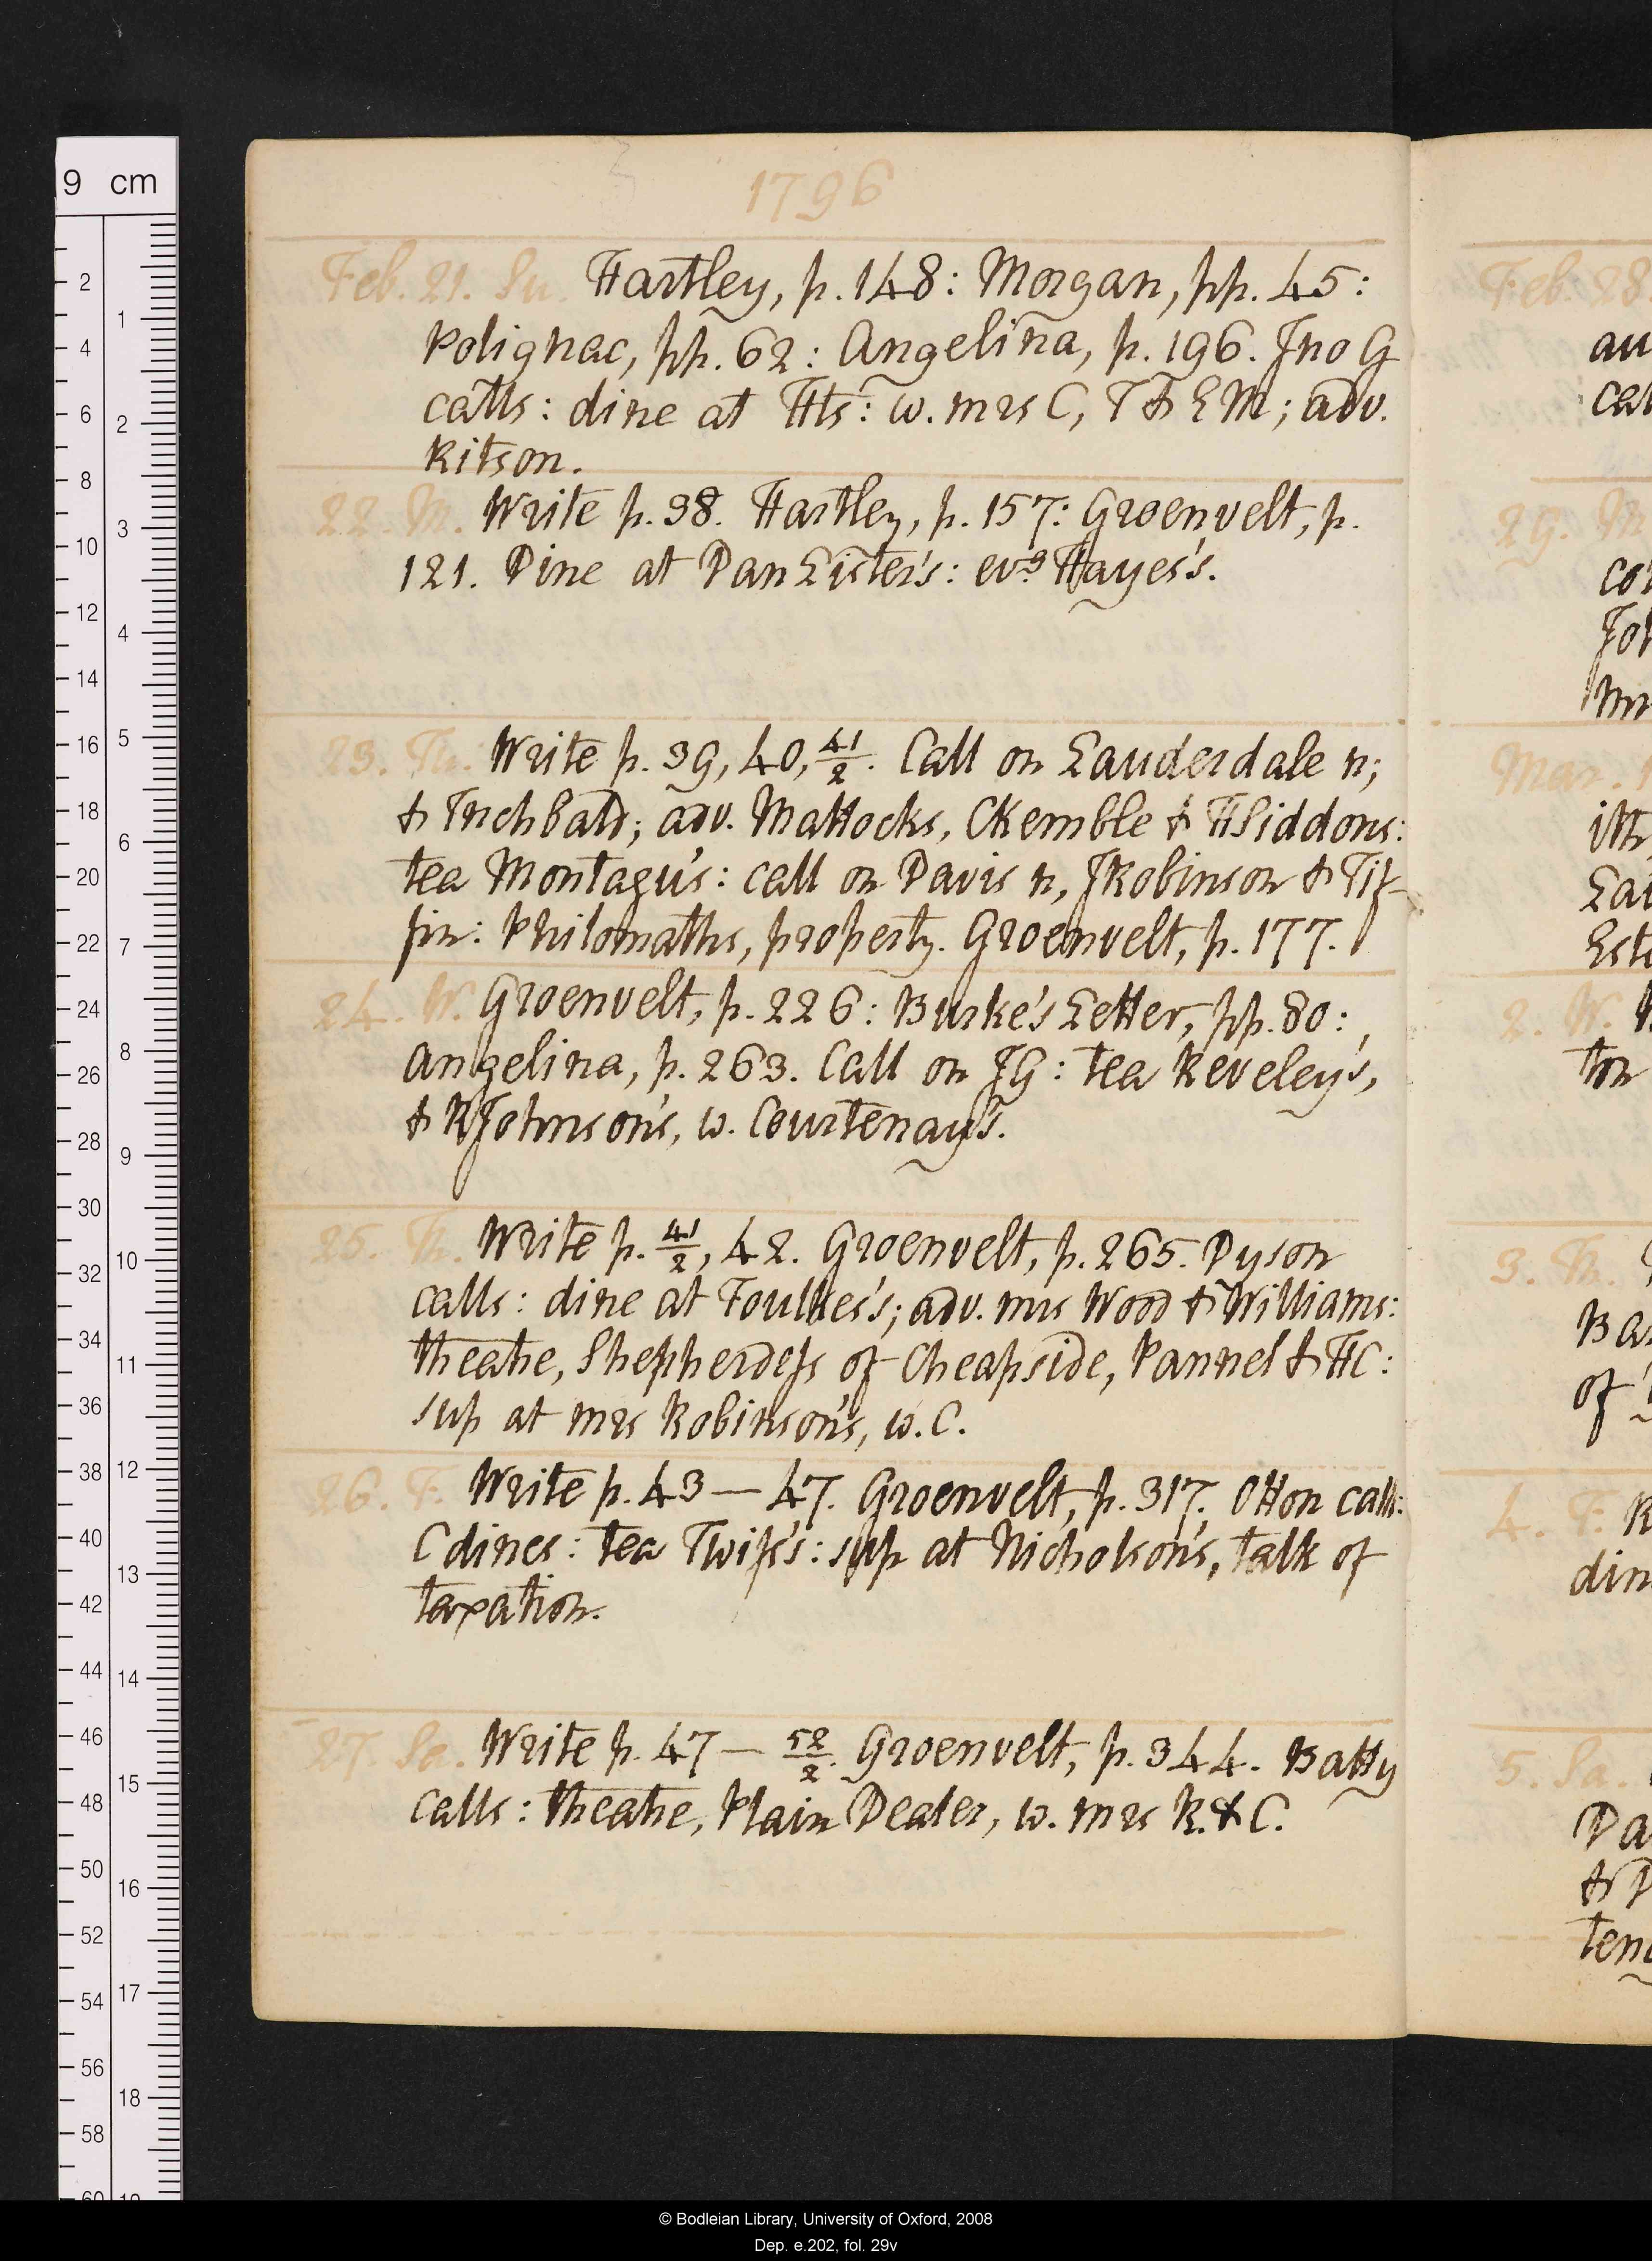 1796
Feb. 21. Su. Hartley, p. 148: Morgan, pp. 45:
Polignac, pp. 62: Angelina, p. 196. Jno G
calls: dine at Hts: w. mrs C, T & E M; adv.
Ritson.
22. M. Write p. 38. Hartley, p. 157: Groenvelt, p.
121. Dine at Dan Lister's: evg Hayes's.
23. Tu. Write p. 39, 40, 41/2. Call on Lauderdale n;
& Inchbald; adv. Mattocks, CKemble & HSiddons:
tea Montagu's: call on Davis n, JRobinson & Tif-
fin: Philomaths, property. Groenvelt, p. 177.
24. W. Groenvelt, p. 226: Burke's Letter, pp. 80:
Angelina, p. 263. Call on JG: tea Reveley's,
& RJohnson's, w. Courtenay's.
25. Th. Write p. 41/2, 42. Groenvelt, p. 265. Dyson
calls: dine at Foulkes's; adv. mrs Wood & Williams:
theatre, Shepherdess of Cheapside, Pannel & HC:
sup at mrs Robinson's, w. C.
26. F. Write p. 43 — 47. Groenvelt, p. 317. Otton calls:
C dines: tea Twiss's: sup at Nicholson's, talk of
taxation.
27 Sa. Write p. 47 — 52/2. Groenvelt, p. 344. Batty
calls: theatre, Plain Dealer, w. mrs R. & C.
Feb. 28
au
cal
29. M
co
Joh
Mar. 1
Lau
Este
2. W.
ton
3. Th.
Ba
of
4. F. R
din
5. Sa.
Da
& P
ten
9 cm
2
4
6
8
10
12
14
16
18
20
22
24
26
28
30
32
34
36
38
40
42
44
46
48
50
52
54
56
58
60
1
2
3
4
5
6
7
8
9
10
11
12
13
14
15
16
17
18
19
© Bodleian Library, University of Oxford, 2008
Dep. e.202, fol. 29v